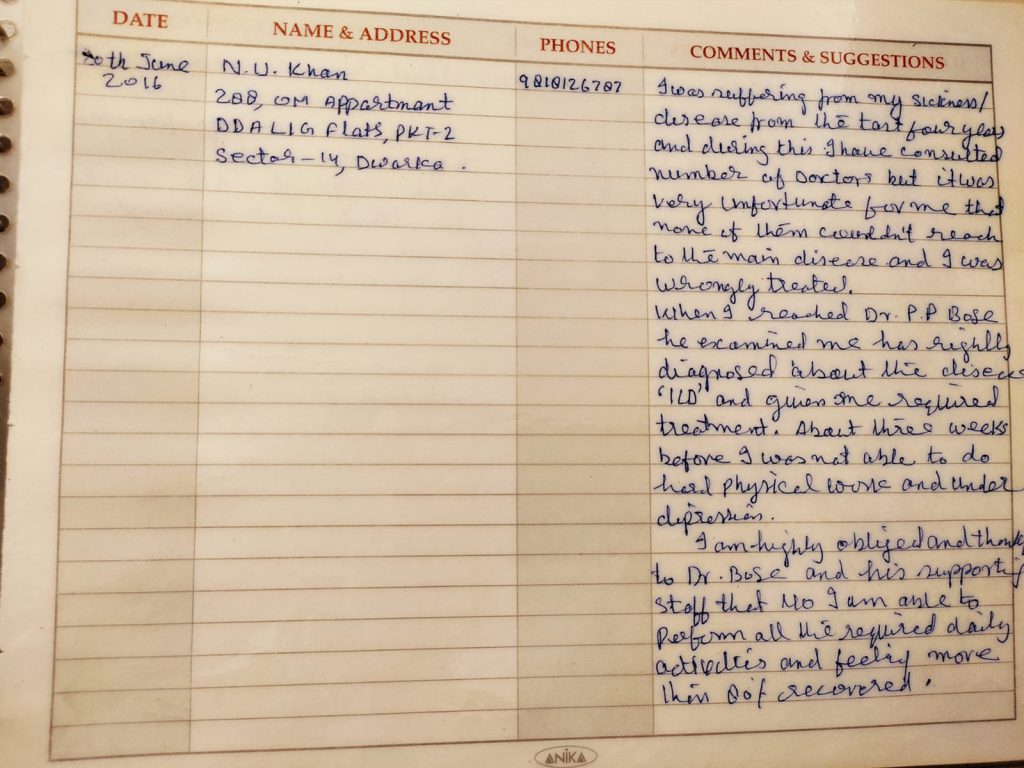 DATE
NAME & ADDRESS
PHONES
COMMENTS & SUGGESTIONS
th June
2016
N.U. Khan
208, OM Appartment
DDA LIG Flats, PKT-2
Sector-14, Dwarka.
I was suffering from my sickness/
disease from the last four years
and during this I have consulted
number of Doctors but it was
very Unfortunate for me that
none of them couldn't reach
to the main disease and I was
wrongly treated.
When I reached Dr. P.P Bose
he examined me has rightly
diagnosed about the disease
'ILD' and given me required
treatment. About three weeks
before I was not able to do
hard physical work and under
depression.
I am highly obliged and thank
to Dr. Bose and his supporting
staff that I am able to
Perform all the required daily
activities and feeling more
than recovered.
ANIKA